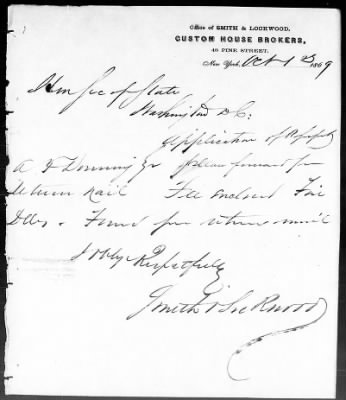 Office of SMITH & LOCKWOOD,
CUSTOM HOUSE BROKERS,
46 PINE STREET.
New York, Oct 1 1869
Hon Sec of State
Washington D.C.
Application of
A F Downing Jr please forward per
return mail Fee enclosed Five
Dolls.
& oblige Respectfully
Smith & Lockwood